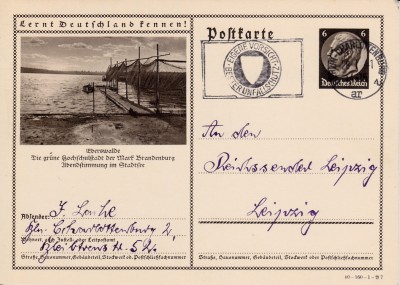 Lernt Deutschland kennen!
Postkarte
EIGENE VORSICHT
BESTER UNFALLSCHUTZ
BERLIN-CHARLOTTENBURG
6 6
Deutsches Reich
Eberswalde
Die grüne Hochschulstadt der Mark Brandenburg
Abendstimmung im Stadtsee
An den
Reichssender Leipzig
Leipzig
Absender:
Bln. Charlottenburg 2,
Wohnort, auch Zustell- oder Leitpostamt
Straße, Hausnummer, Gebäudeteil, Stockwerk od. Postschließfachnummer
Straße, Hausnummer, Gebäudeteil, Stockwerk oder Postschließfachnummer